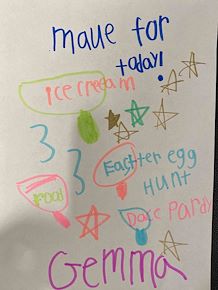 maue for
today!
ice creeam
3
3
Eachter egg
HUNT
food
Dacc Pardy
Gemma